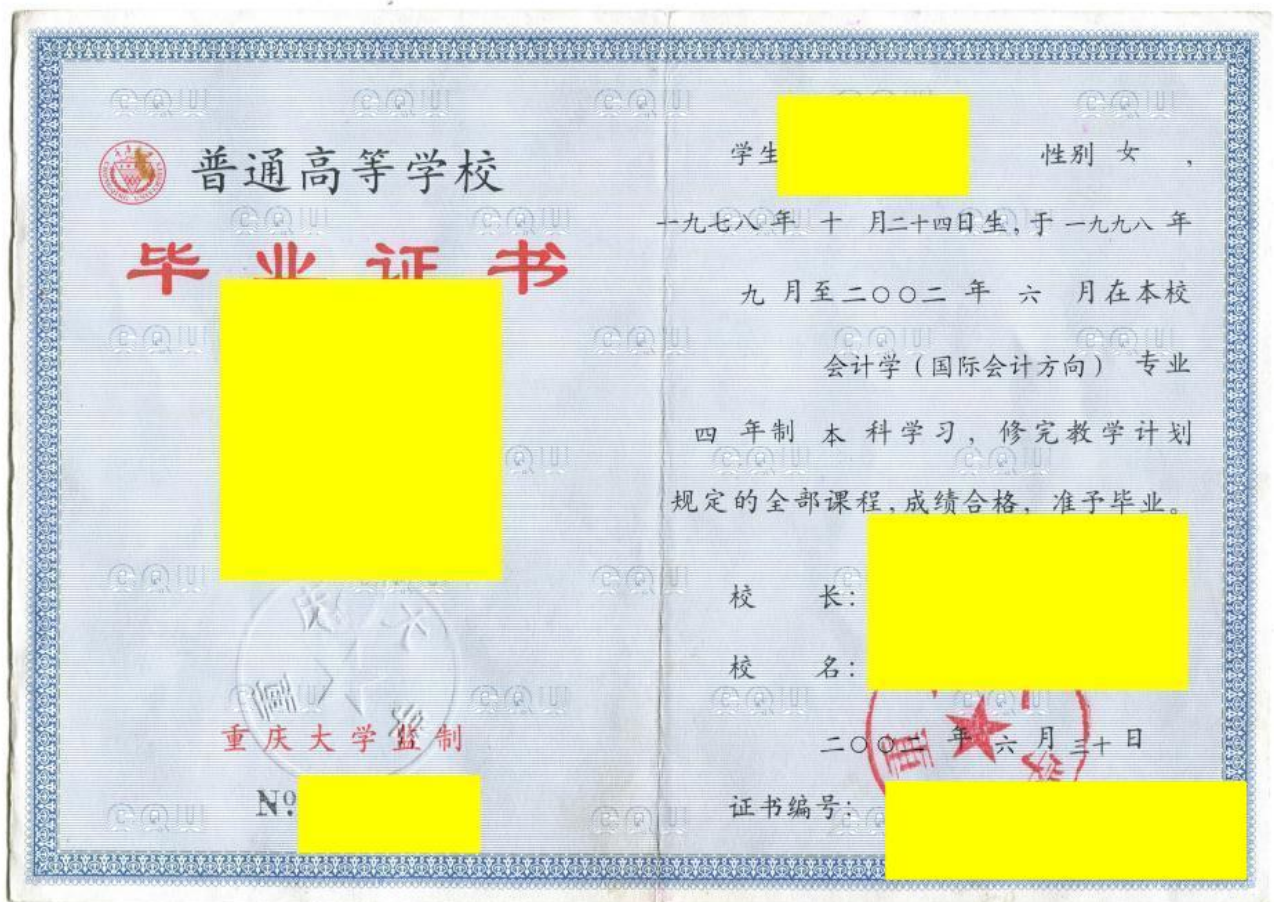 普通高等学校
毕业证书
重庆大学监制
Nº
学生 性别 女 ,
一九七八年 十 月二十四日生,于一九九八 年
九 月至二〇〇二 年 六 月在本校
会计学(国际会计方向) 专业
四 年制 本 科学习,修完教学计划
规定的全部课程,成绩合格,准予毕业。
校 长:
校 名:
二〇〇二 年 六 月三十日
证书编号:
CQU